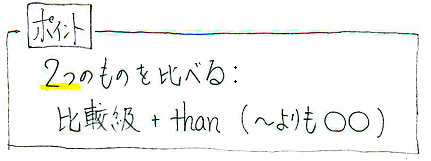 ポイント
2つのものを比べる:
比較級 + than (～よりも〇〇)